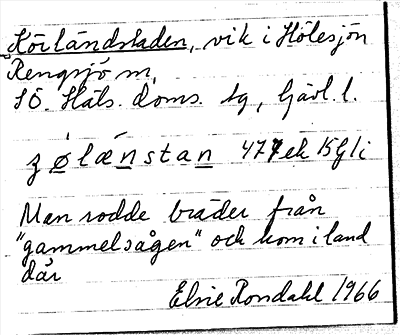 Körländstaden, vik i Hölesjön
Rengsjö sn,
SÖ. Häls. doms. tg, Gävl. l.
477 ek
Man rodde bräder från
"gammelsågen" och kom i land
där
Elsie Rondahl 1966